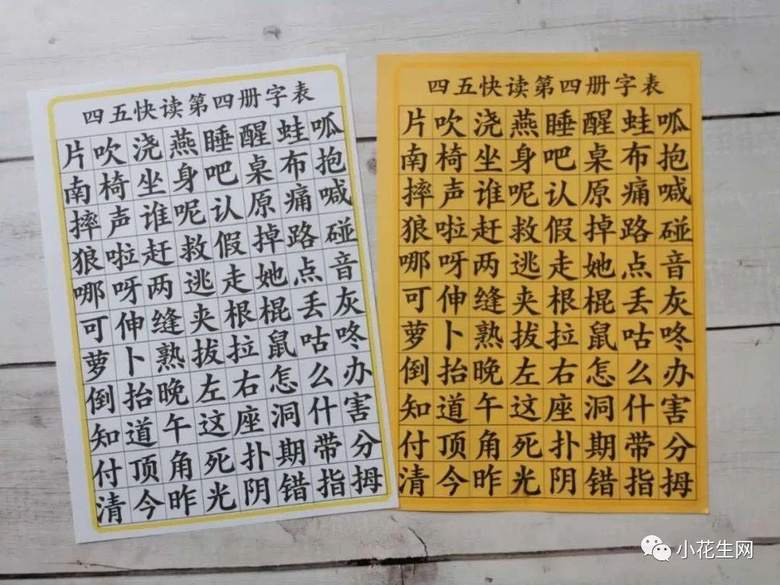 四五快读第四册字表
片吹浇燕睡醒蛙呱
南椅坐身吧桌布抱
摔声谁呢认原痛喊
狼啦赶救假掉路碰
哪呀两逃走她点音
可伸缝夹根棍丢灰
萝卜熟拔拉鼠咕咚
倒抬晚左右怎么办
知道午这座洞什害
付顶角死扑期带分
清今昨光阴错指拇
四五快读第四册字表
片吹浇燕睡醒蛙呱
南椅坐身吧桌布抱
摔声谁呢认原痛喊
狼啦赶救假掉路碰
哪呀两逃走她点音
可伸缝夹根棍丢灰
萝卜熟拔拉鼠咕咚
倒抬晚左右怎么办
知道午这座洞什害
付顶角死扑期带分
清今昨光阴错指拇
小花生网